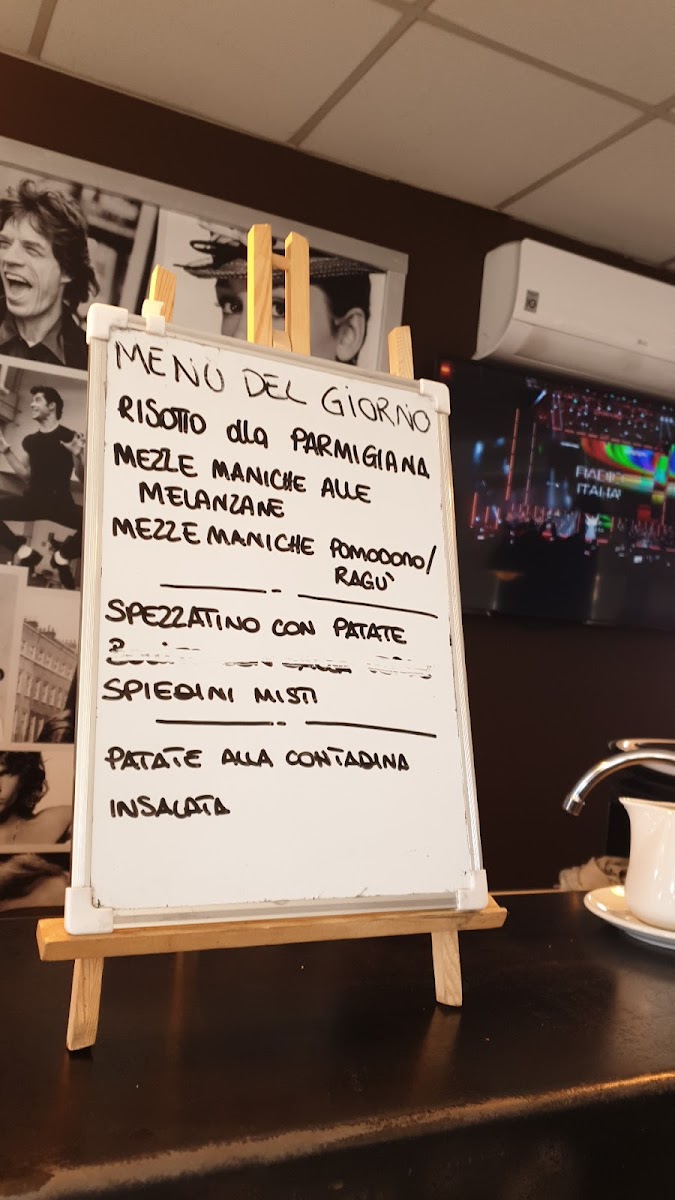 MENÙ DEL GIORNO
RISOTTO alla PARMIGIANA
MEZZE MANICHE ALLE
MELANZANE
MEZZE MANICHE POMODORO/
RAGÙ
SPEZZATINO CON PATATE
SPIEDINI MISTI
PATATE ALLA CONTADINA
INSALATA
RADIO
ITALIA
LG